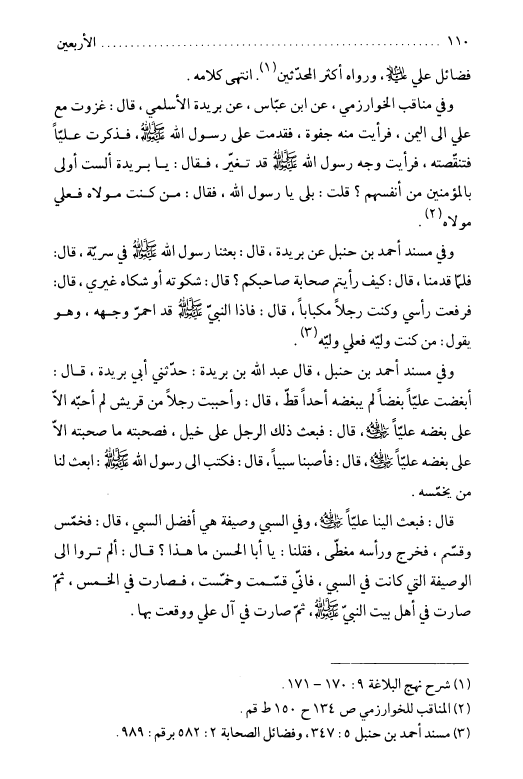 ١١٠ .......................................................... الأربعين
فضائل علي عليه‌السلام، ورواه أكثر المحدّثين(١). انتهى كلامه .
وفي مناقب الخوارزمي ، عن ابن عبّاس ، عن بريدة الأسلمي ، قال : غزوت مع
علي الى اليمن ، فرأيت منه جفوة ، فقدمت على رسول الله ﷺ، فذكرت عليّاً
فتنقّصته ، فرأيت وجه رسول الله ﷺ قد تغيّر ، فقال : يا بريدة ألست أولى
بالمؤمنين من أنفسهم ؟ قلت : بلى يا رسول الله ، فقال : من كنت مولاه فعلي
مولاه(٢).
وفي مسند أحمد بن حنبل عن بريدة ، قال : بعثنا رسول الله ﷺ في سريّة ، قال:
فلمّا قدمنا ، قال : كيف رأيتم صحابة صاحبكم ؟ قال : شكوته أو شكاه غيري ، قال:
فرفعت رأسي وكنت رجلاً مكباباً ، قال : فاذا النبيّ ﷺ قد احمرّ وجهه ، وهو
يقول : من كنت وليّه فعلي وليّه(٣).
وفي مسند أحمد بن حنبل ، قال عبد الله بن بريدة : حدّثني أبي بريدة ، قال :
أبغضت عليّاً بغضاً لم يبغضه أحداً قطّ ، قال : وأحببت رجلاً من قريش لم أحبّه الاّ
على بغضه عليّاً ، قال : فبعث ذلك الرجل على خيل ، فصحبته ما صحبته الاّ
على بغضه عليّاً ، قال : فأصبنا سبياً ، قال : فكتب الى رسول الله ﷺ : ابعث لنا
من يخمّسه .
قال : فبعث الينا عليّاً ، وفي السبي وصيفة هي أفضل السبي ، قال : فخمّس
وقسّم ، فخرج ورأسه مغطّى ، فقلنا : يا أبا الحسن ما هذا ؟ قال : ألم تروا الى
الوصيفة التي كانت في السبي ، فانّي قسّمت وخمّست ، فصارت في الخمس ، ثمّ
صارت في أهل بيت النبيّ ﷺ ، ثمّ صارت في آل علي ووقعت بها .
(١) شرح نهج البلاغة ٩ : ١٧٠ – ١٧١ .
(٢) المناقب للخوارزمي ص ١٣٤ ح ١٥٠ ط قم .
(٣) مسند أحمد بن حنبل ٥ : ٣٤٧ ، وفضائل الصحابة ٢ : ٥٨٢ برقم : ٩٨٩ .